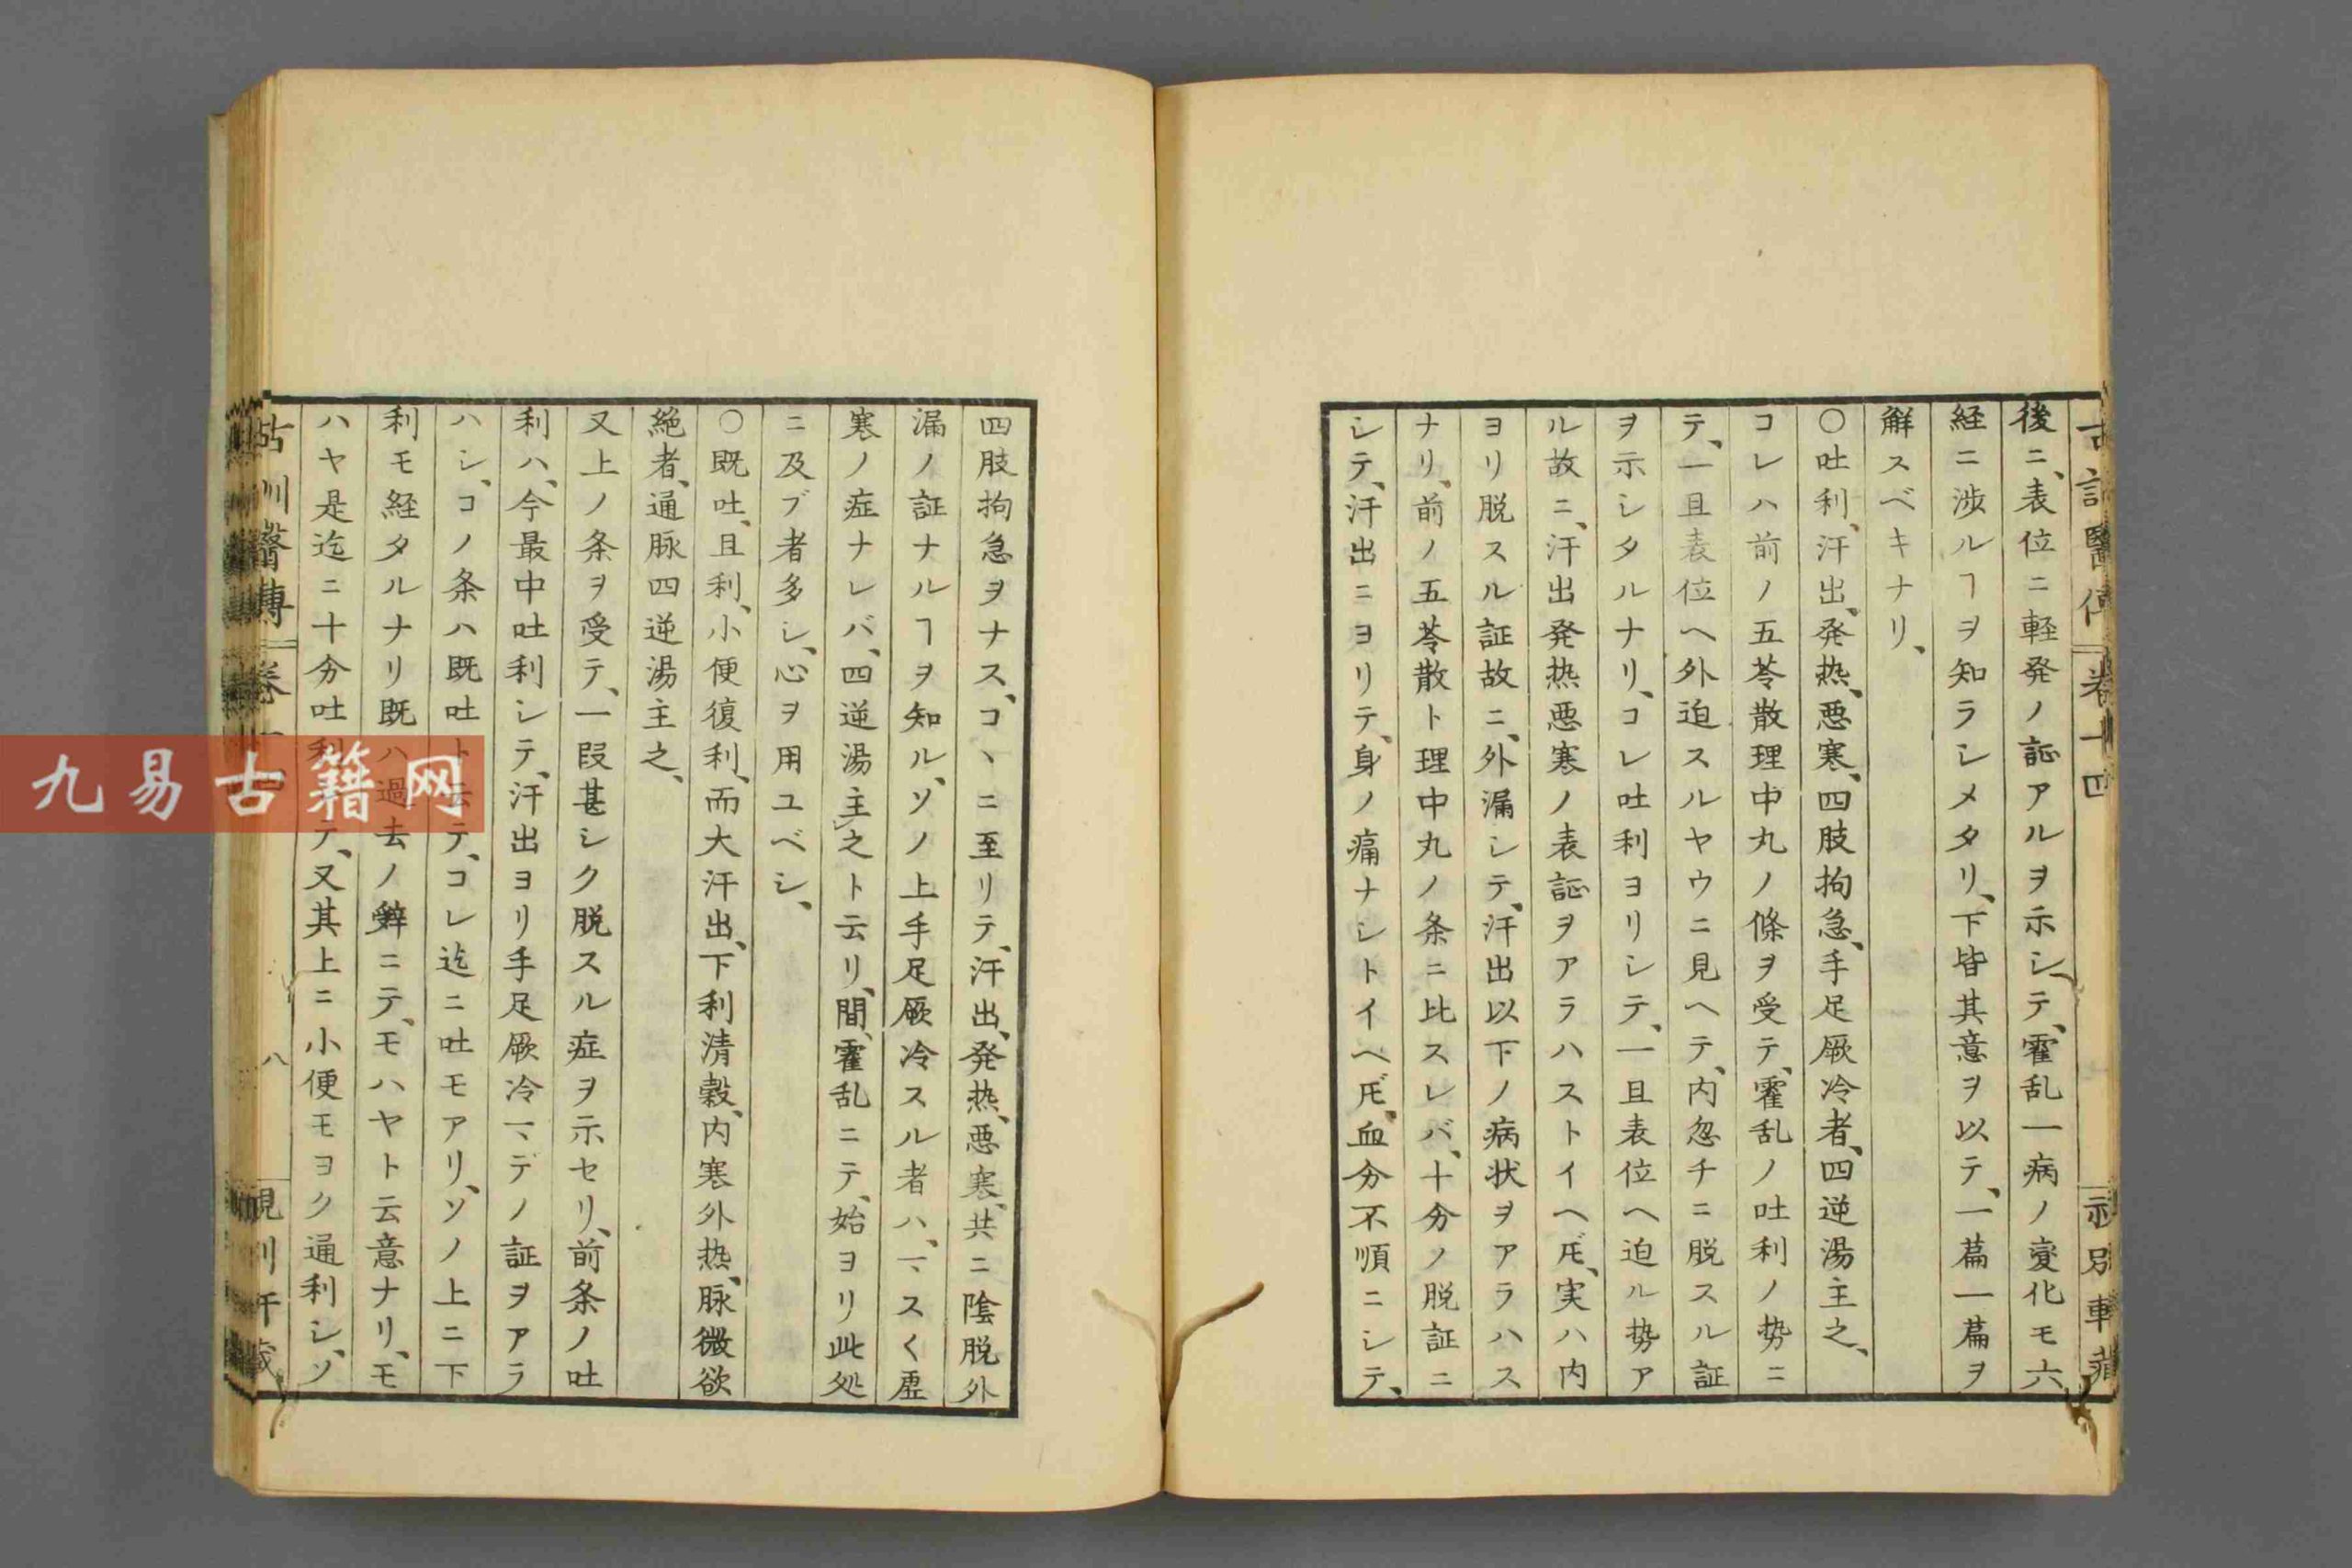 後ニ、表位ニ軽発ノ証アルヲ示シテ、霍乱一病ノ変化モ六
経ニ渉ルヿヲ知ラシメタリ、下皆其意ヲ以テ、一篇一篇ヲ
解スベキナリ、
〇吐利、汗出、発热、悪寒、四肢拘急、手足厥冷者、四逆湯主之、
コレハ前ノ五苓散理中丸ノ條ヲ受テ、霍乱ノ吐利ノ势ニ
テ、一旦表位ヘ外迫スルヤウニ見ヘテ、内忽チニ脱スル証
ヲ示シタルナリ、コレ吐利ヨリシテ、一旦表位ヘ迫ル势ア
ル故ニ、汗出発热悪寒ノ表証ヲアラハストイヘ𪜈、実ハ内
ヨリ脱スル証故ニ、外漏シテ、汗出以下ノ病状ヲアラハス
ナリ、前ノ五苓散ト理中丸ノ条ニ比スレバ、十分ノ脱証ニ
シテ、汗出ニヨリテ、身ノ痛ナシトイヘ𪜈、血分不順ニシテ、
四肢拘急ヲナス、コヽニ至リテ、汗出、発热、悪寒、共ニ陰脱外
漏ノ証ナルヿヲ知ル、ソノ上手足厥冷スル者ハ、マスく虚
寒ノ症ナレバ、四逆湯主之ト云リ、間、霍乱ニテ、始ヨリ此処
ニ及ブ者多シ、心ヲ用ユベシ、
〇既吐、且利、小便復利、而大汗出、下利清穀、内寒外热、脉微欲
絶者、通脉四逆湯主之、
又上ノ条ヲ受テ、一段甚シク脱スル症ヲ示セリ、前条ノ吐
利ハ、今最中吐利シテ、汗出ヨリ手足厥冷マデノ証ヲアラ
ハシ、コノ条ハ既吐ト云テ、コレ迄ニ吐モアリ、ソノ上ニ下
利モ経タルナリ既ハ過去ノ辞ニテ、モハヤト云意ナリ、モ
ハヤ是迄ニ十分吐利テ、又其上ニ小便モヨク通利シ、ソ
古訓醫傳 卷十四
八
九易古籍网